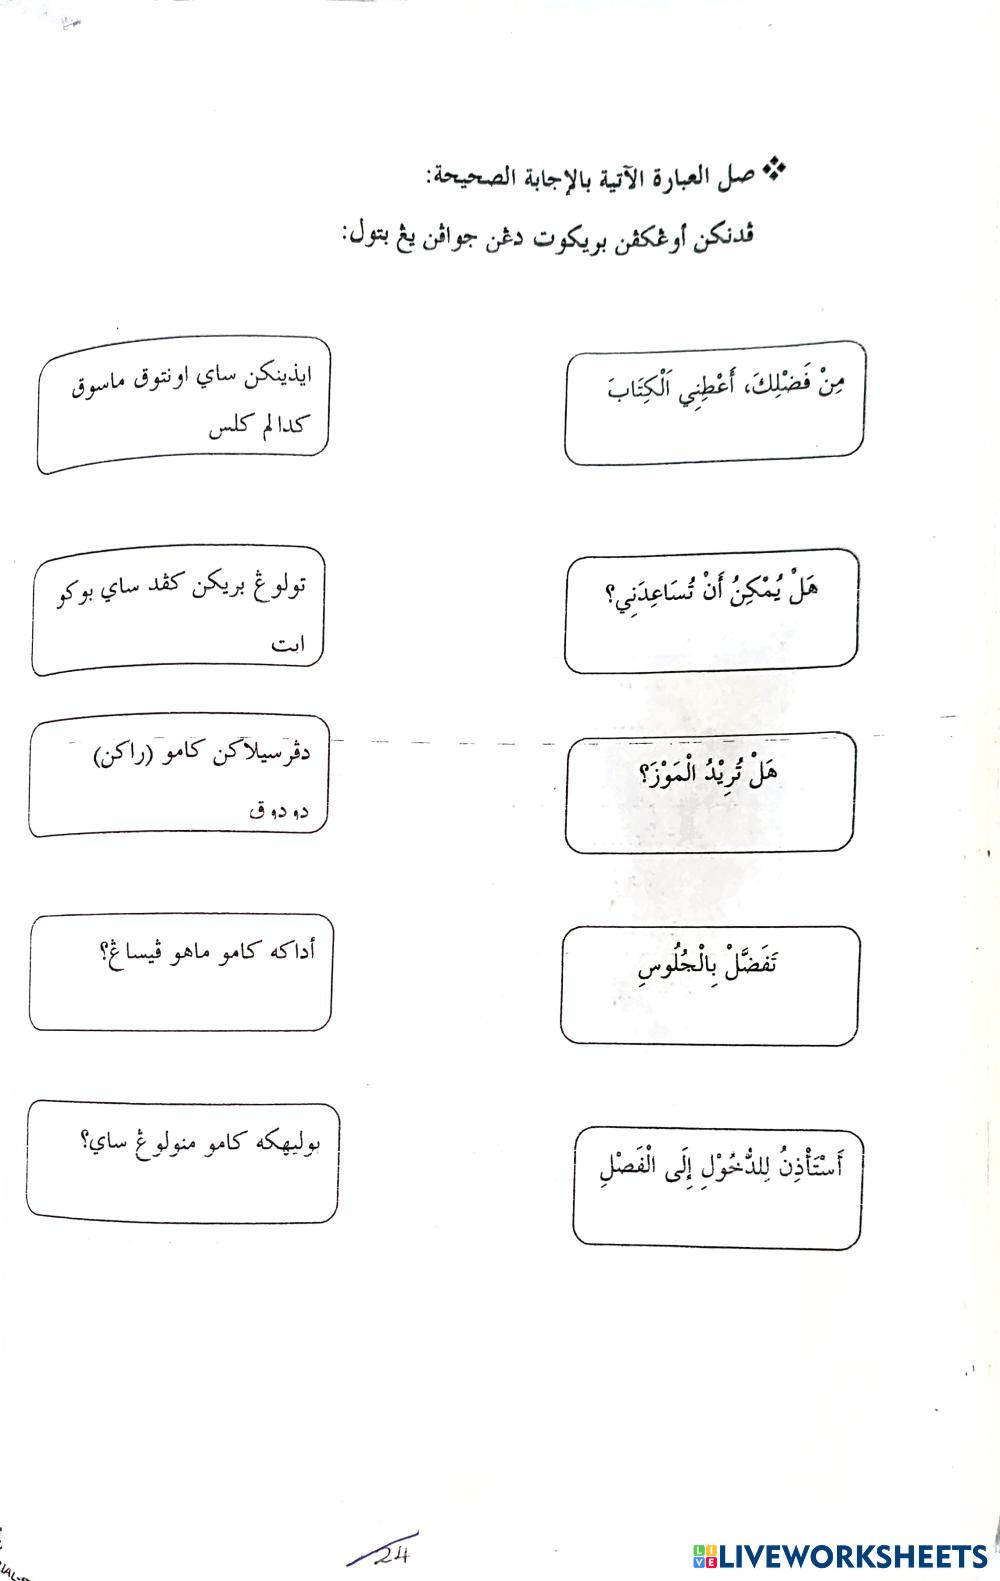 ❖ صل العبارة الآتية بالإجابة الصحيحة:
ڤدنكن أوڠكڤن بريكوت دڠن جواڤن يڠ بتول:
مِنْ فَضْلِكَ، أَعْطِنِي اَلْكِتَابَ
ايذينكن ساي اونتوق ماسوق
كدالم كلس
هَلْ يُمْكِنُ أَنْ تُسَاعِدَنِي؟
تولوڠ بريكن كڤد ساي بوكو
ايت
هَلْ تُرِيْدُ الْمَوْزَ؟
دڤرسيلاكن كامو (راكن)
دودوق
تَفَضَّلْ بِالْجُلُوسِ
أداكه كامو ماهو ڤيساڠ؟
أَسْتَأْذِنُ لِلدُّخُوْلِ إِلَى الْفَصْلِ
بوليهكه كامو منولوڠ ساي؟
24
LIVEWORKSHEETS